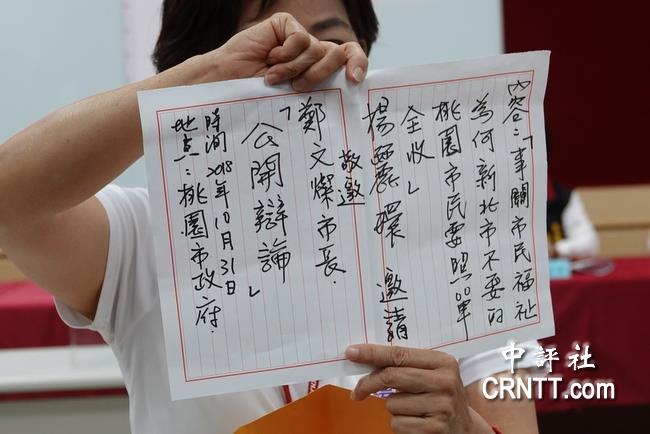 內容：「事關市民福祉
為何新北市不要的
桃園市民要照單
全收」
楊麗環 邀請
敬邀
鄭文燦市長．
「公開辯論」
時間：2018年10月31日
地点：桃園市政府．
中評社
CRNTT.com